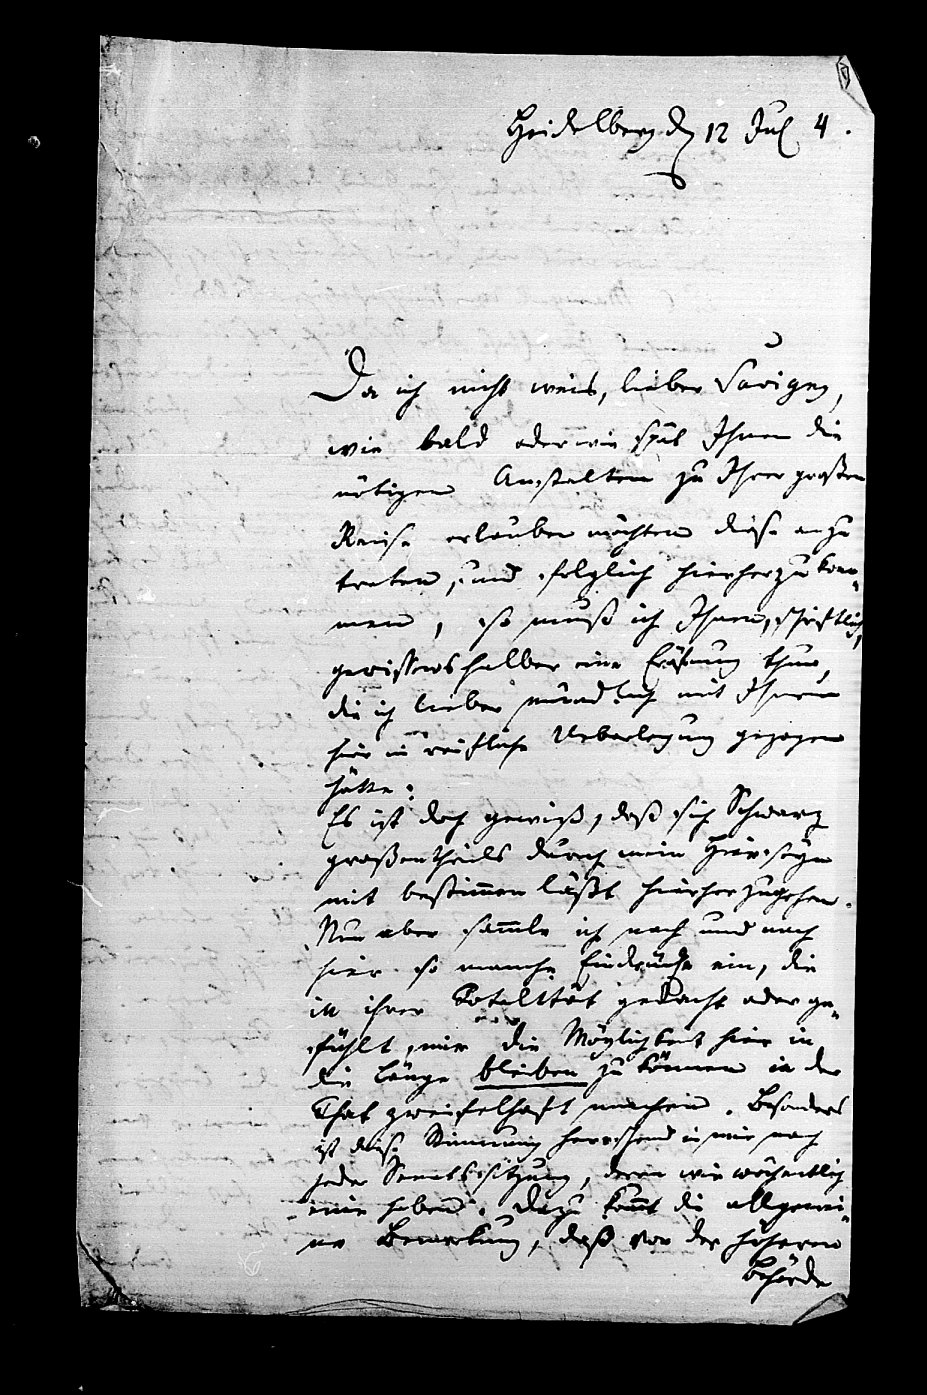 Heidelberg d 12 Jul 4.
Da ich nicht weis, lieber Savigny,
wie bald oder wie spät Ihnen die
nötigen Anstalten zu Ihrer großen
Reise erlauben möchten diese anzu
treten, und folglich hierherzukom-
men, so muß ich Ihnen, schriftlich,
gewissenshalber eine Eröfnung thun,
die ich lieber mündlich mit Ihnen
hier in reifliche Ueberlegung gezogen
hätte:
Es ist doch gewiß, daß sich Schwarz
großentheils durch mein Hierseyn
mit bestimmen läßt hierherzugehen.
Nun aber sammle ich nach und nach
hier so manche Eindrücke ein, die
in ihrer Totalität gedacht oder ge-
fühlt, mir die Möglichkeit hier in
die Länge bleiben zu können in der
That zweifelhaft machen. Besonders
ist diese Stimmung herrschend in mir nach
jeder Senatssitzung, deren wir wöchentlich
eine haben. Dazu kommt die allgemei-
ne Bemerkung, daß von der höheren
Behörde